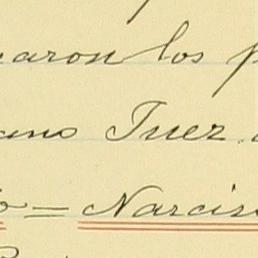 aron los p
ano Juez.
o = Narcis